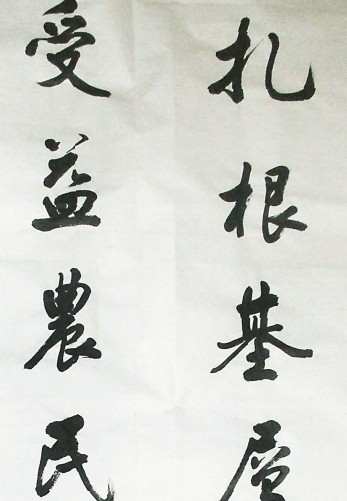 扎根基層
受益農民